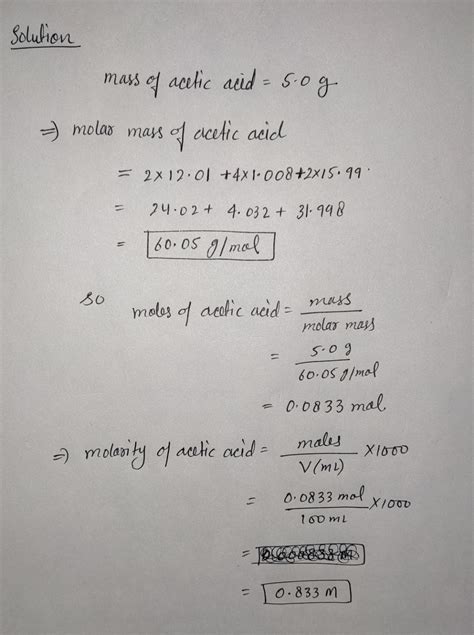 Solution
mass of acetic acid = 5.0 g
⇒ molar mass of acetic acid
= 2×12.01 + 4×1.008 + 2×15.99
= 24.02 + 4.032 + 31.998
= 60.05 g/mol
so moles of acetic acid = mass / molar mass
= 5.0 g / 60.05 g/mol
= 0.0833 mol
⇒ molarity of acetic acid = moles / V(mL) ×1000
= 0.0833 mol / 100 mL ×1000
=
= 0.833 M